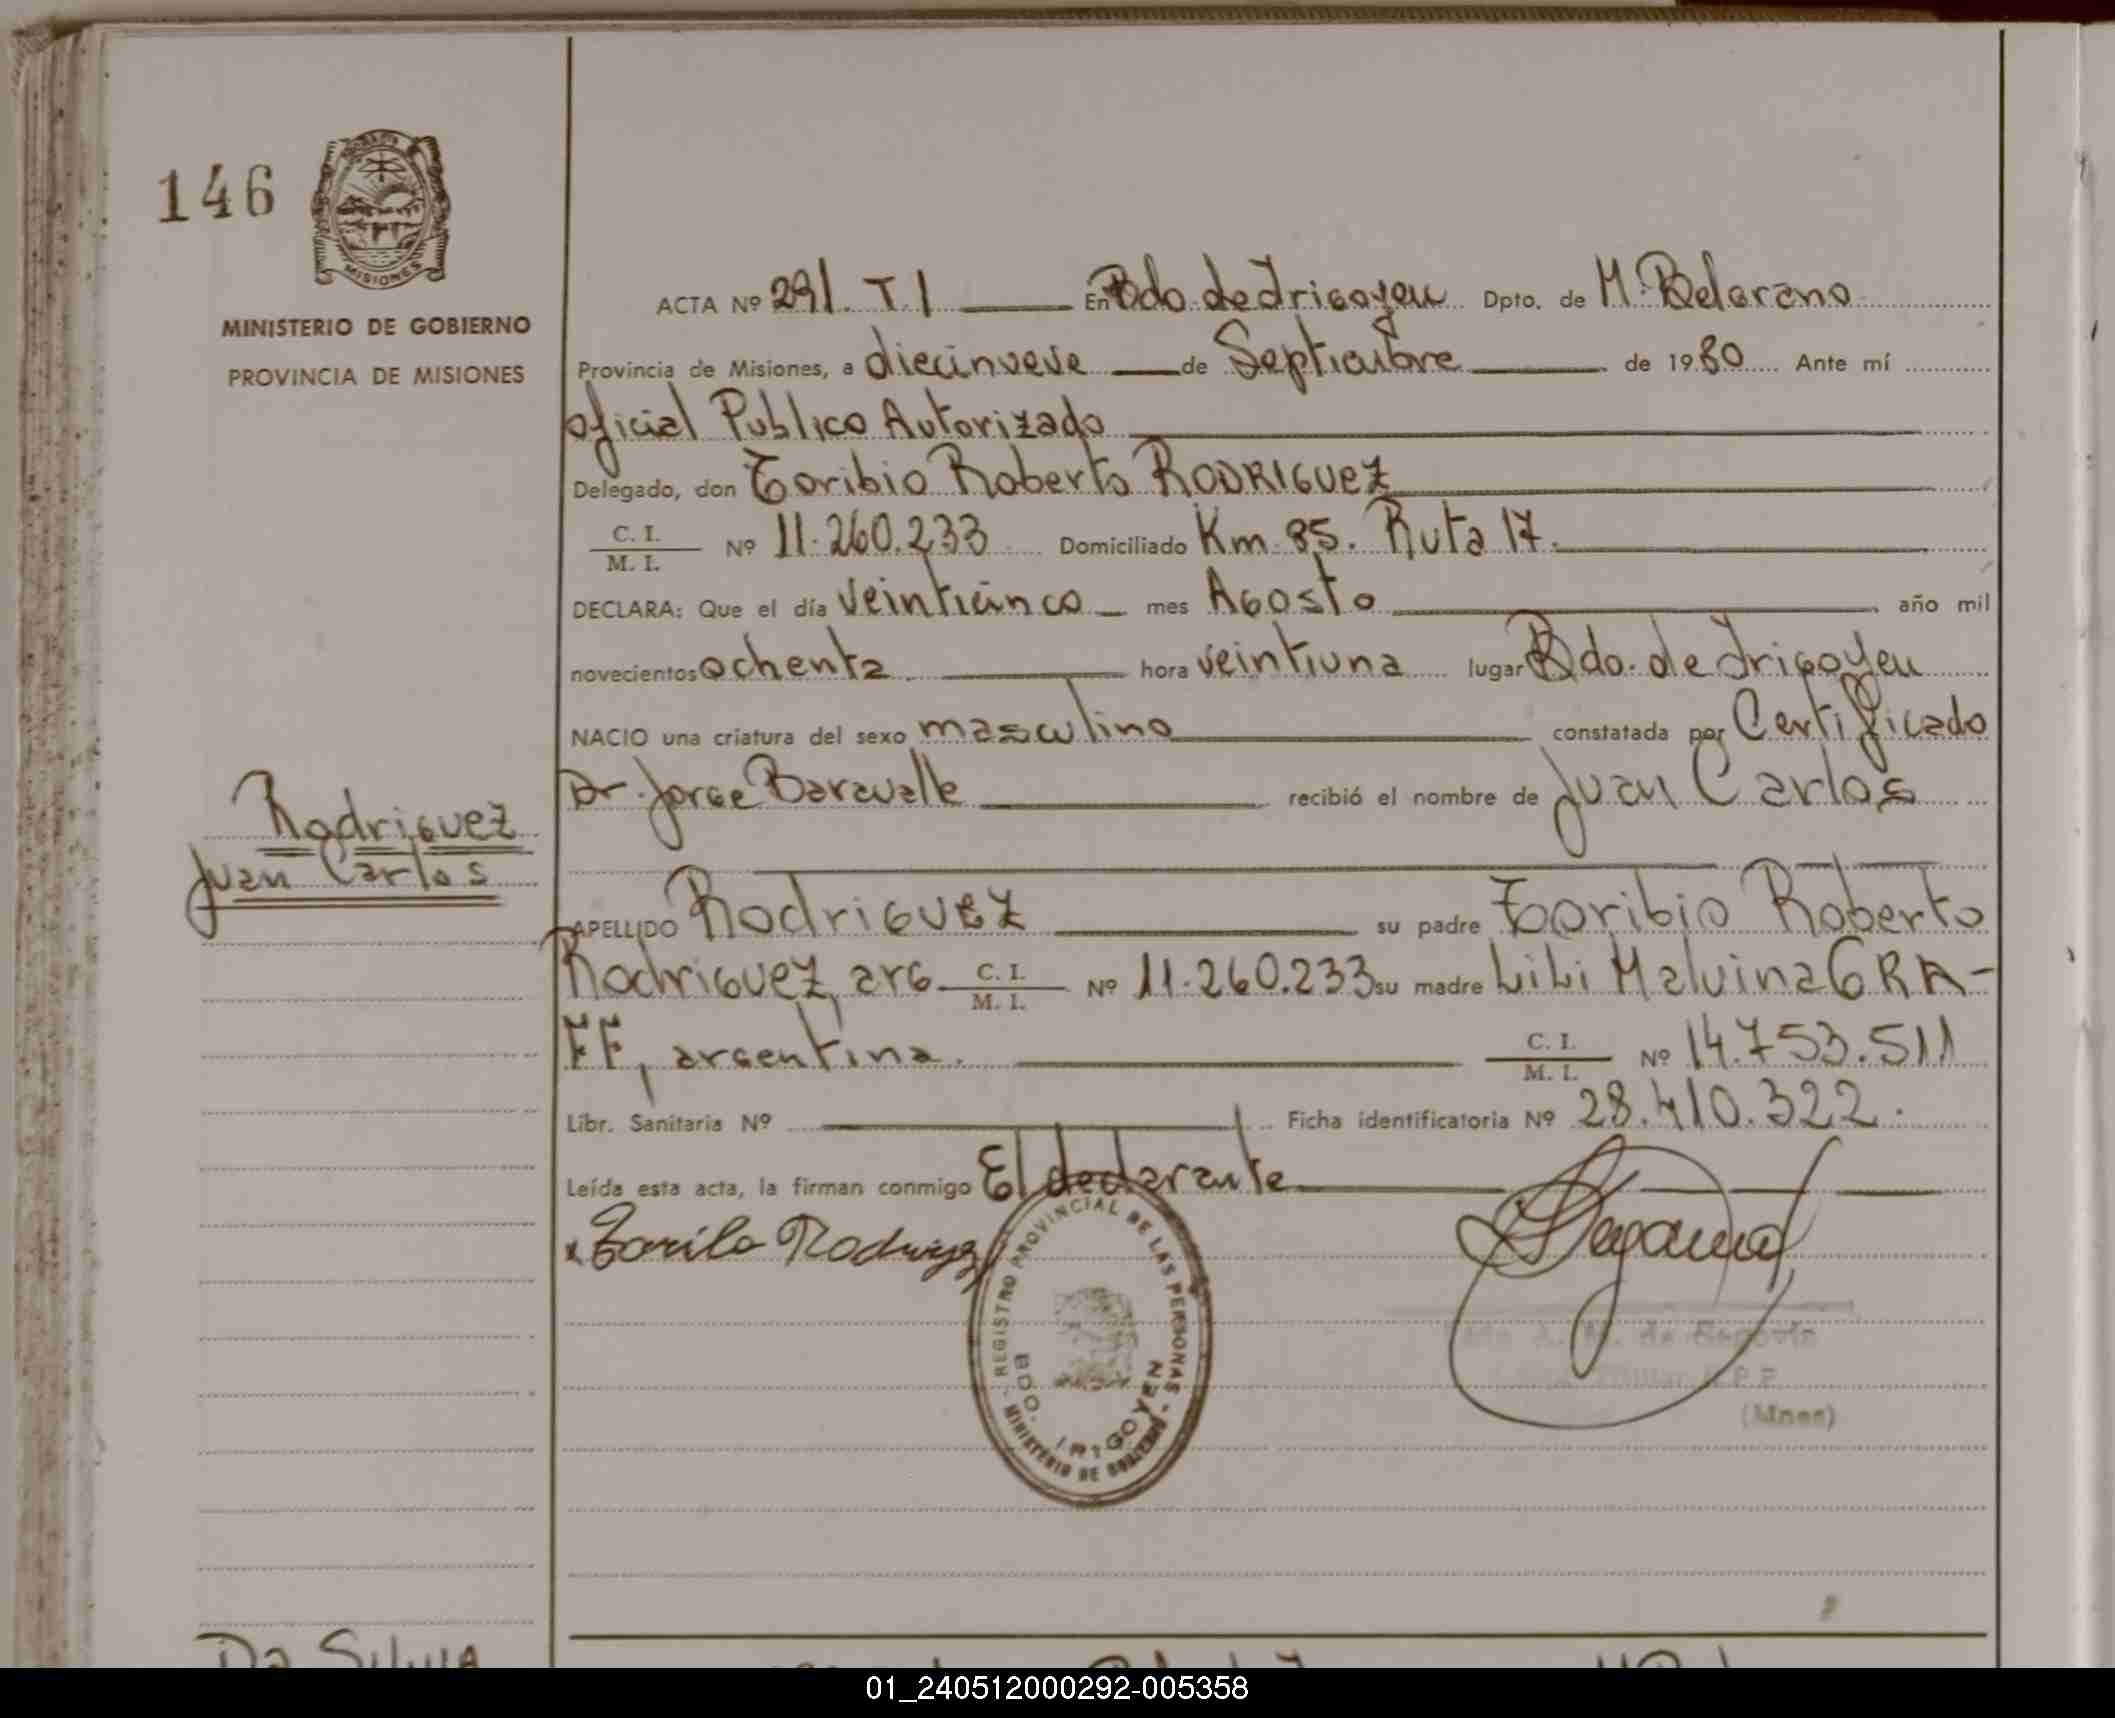 146
MISIONES
MINISTERIO DE GOBIERNO
PROVINCIA DE MISIONES
ACTA Nº 291. T. I En Bdo. de Irigoyen Dpto. de M. Belgrano
Provincia de Misiones, a diecinueve de Septiembre de 1980 Ante mí
oficial Publico Autorizado
Delegado, don Toribio Roberto RODRIGUEZ
C. I. / M. I. Nº 11.260.233 Domiciliado Km. 85. Ruta 17.
DECLARA: Que el día veinticinco mes Agosto año mil
novecientos ochenta hora veintiuna lugar Bdo. de Irigoyen
NACIO una criatura del sexo masculino constatada por Certificado
Dr. Jorge Baravalle recibió el nombre de Juan Carlos
Rodriguez
Juan Carlos
APELLIDO Rodriguez su padre Toribio Roberto
Rodriguez, arg C. I. / M. I. Nº 11.260.233 su madre LiLi Malvina GRA-
FF, argentina. C. I. / M. I. Nº 14.753.511
Libr. Sanitaria Nº Ficha identificatoria Nº 28.410.322.
Leída esta acta, la firman conmigo El declarante
REGISTRO PROVINCIAL DE LAS PERSONAS - MINISTERIO DE GOBIERNO -
BDO. IRIGOYEN
A. M. de Segovia
Titular R.P.P.
(Mnes)
Da Silva
01_240512000292-005358